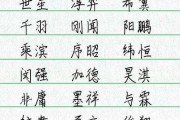 世奎 海弈 希冀
千羽 刚闻 阳鹏
乘滨 序昭 纬恒
闵强 加德 昊淇
非庸 墨祥 与霖